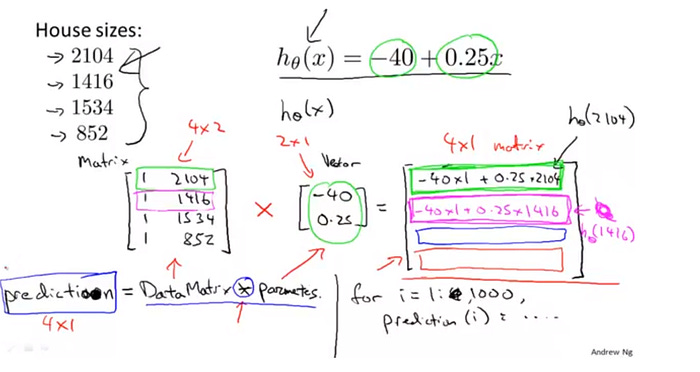 House sizes:
→ 2104
→ 1416
→ 1534
→ 852
hθ(x) = −40 + 0.25x
hθ(x)
Matrix
4×2
1 2104
1 1416
1 1534
1 852
×
2×1
Vector
−40
0.25
=
4×1 matrix
hθ(2104)
−40×1 + 0.25×2104
−40×1 + 0.25×1416
hθ(1416)
prediction = DataMatrix * parametes.
4×1
for i=1:1000,
prediction(i) = ....
Andrew Ng